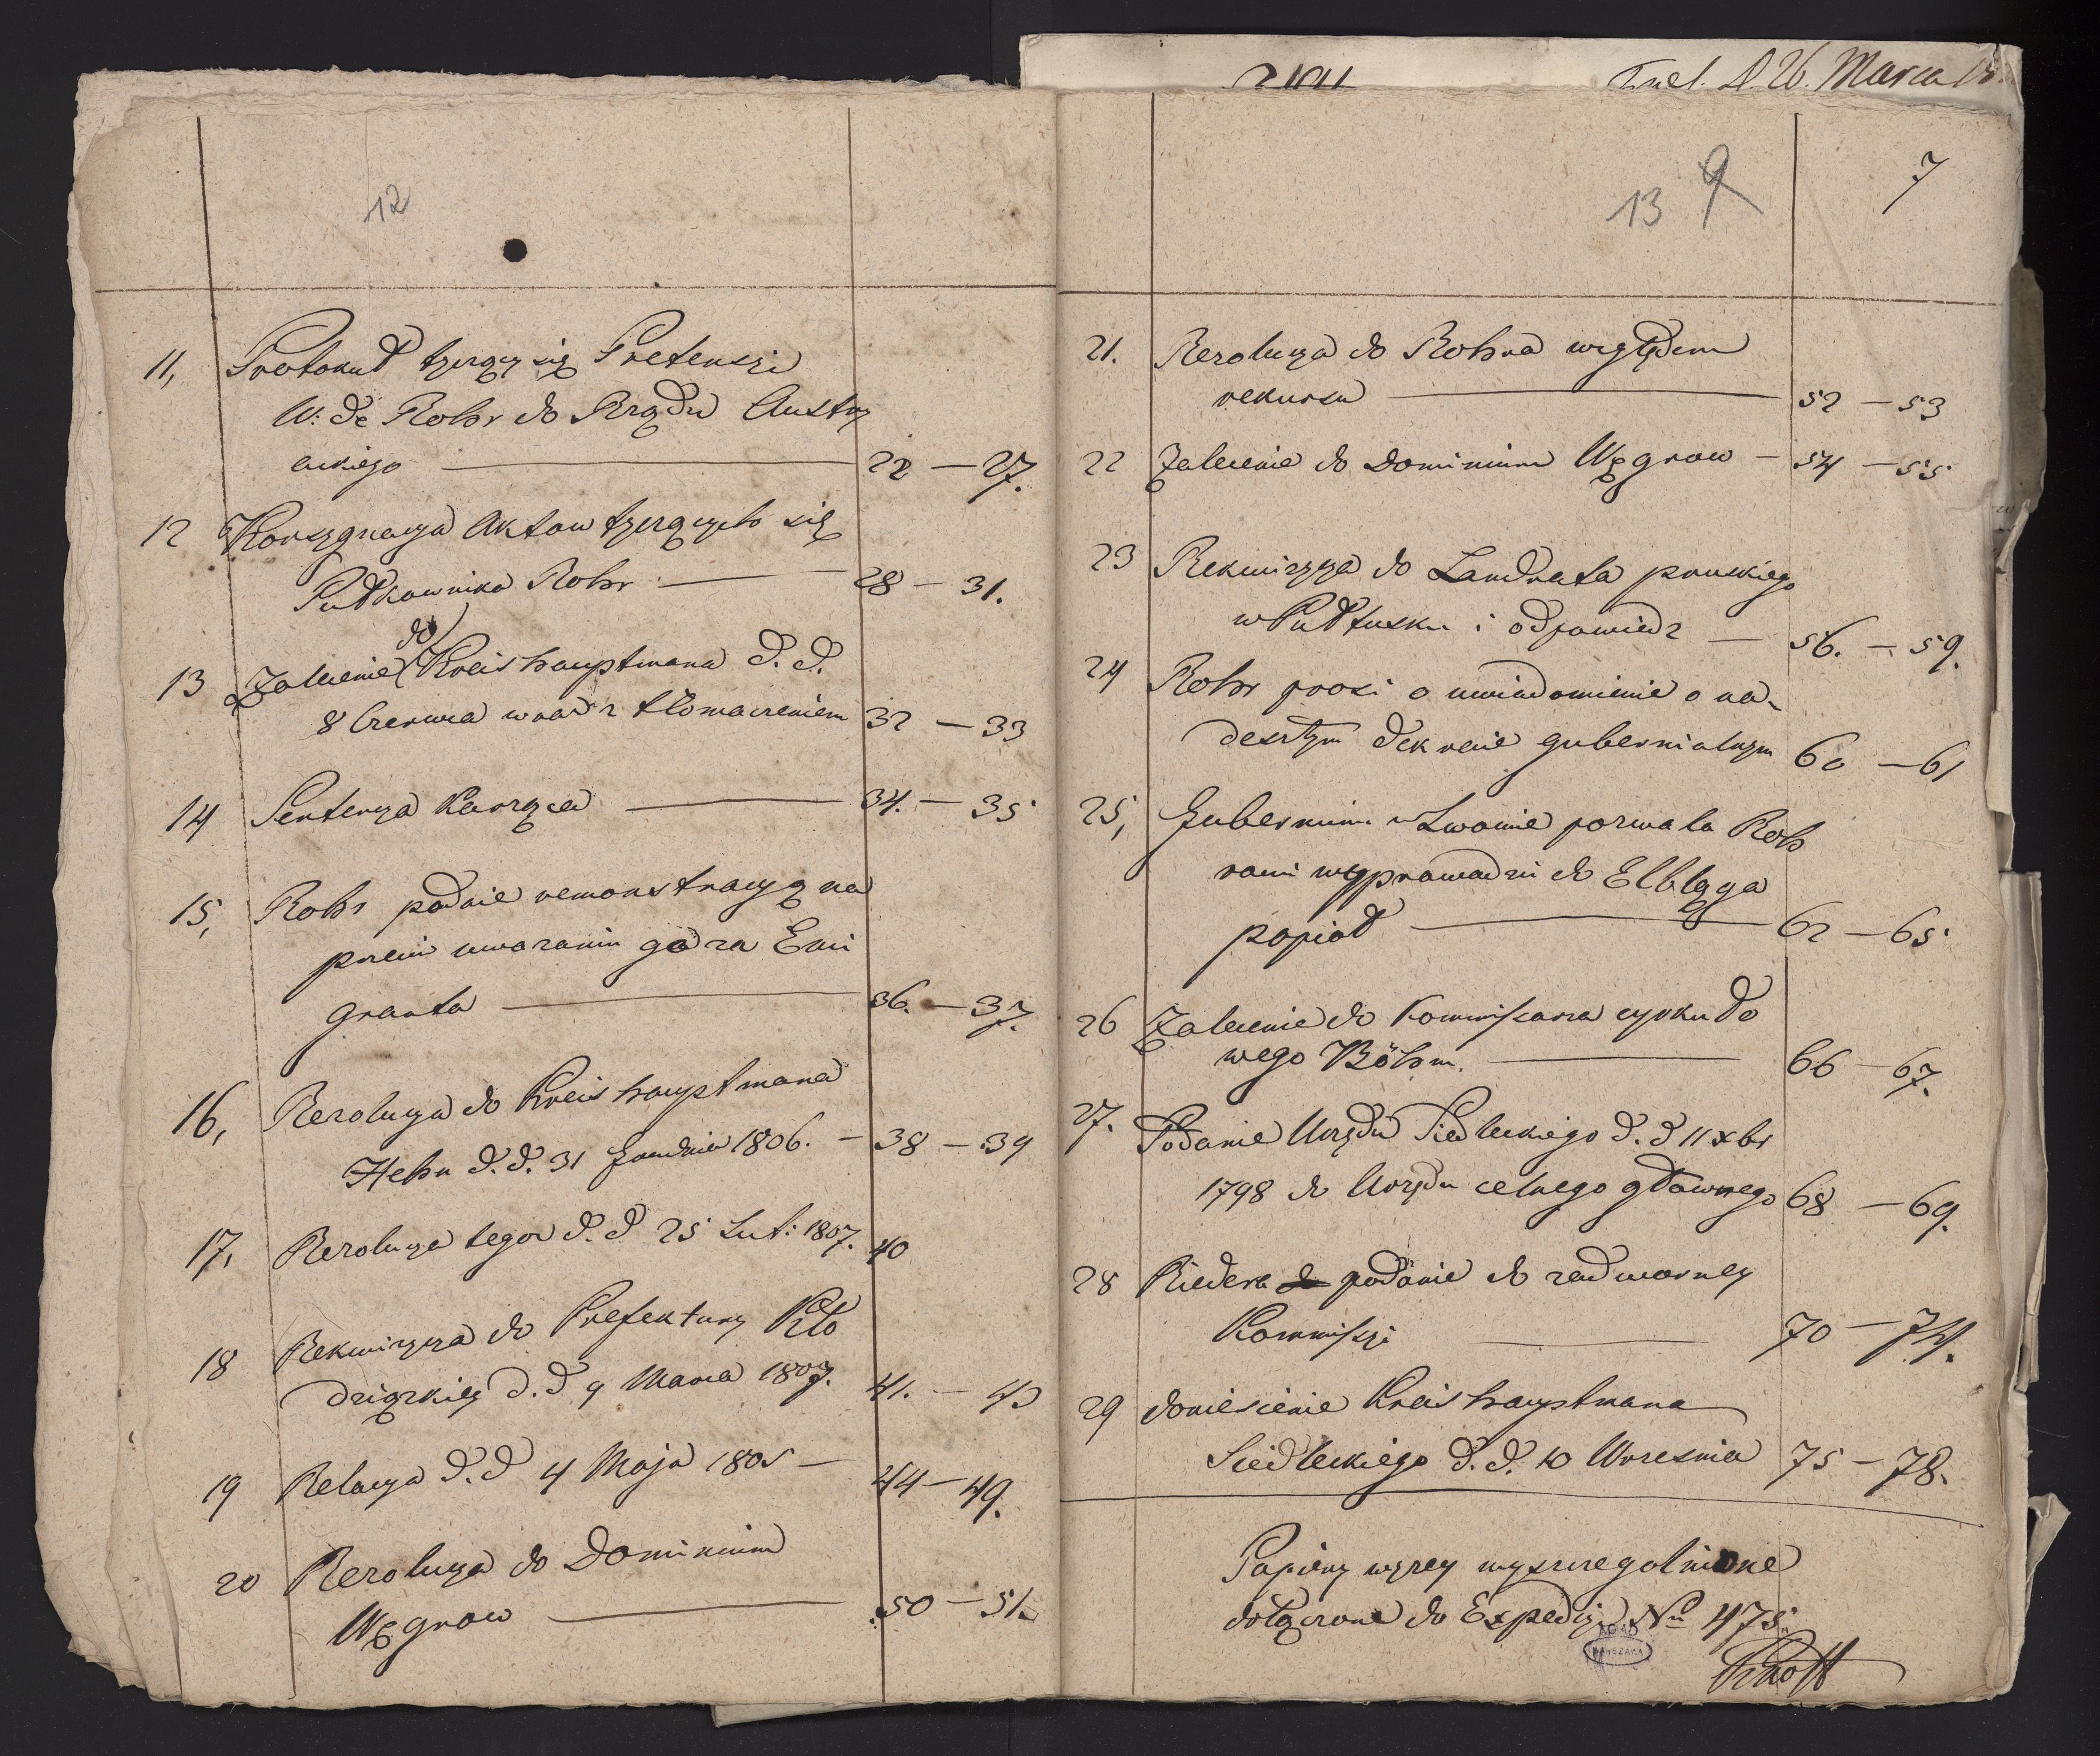 12
11, Protokuł tyczący się Pretensyi
W: de Rohr do Rządu Austry
ackiego — 22 — 27.
12 Konsygnacya Aktow tyczących się
Pułkownika Rohr — 28 — 31.
do
13 Zalecenie Kreishauptmana d. d.
8 Czerwca wraz z tłomaczeniem 32 — 33
14 Sentencya karząca — 34. — 35
15, Rohr podaie remonstracyą na
przeciw uwazaniu go za Emi
granta — 36. — 37.
16, Rezolucya do Kreishauptmana
Hehn d. d. 31 Grudnia 1806. — 38 — 39
17, Rezolucya tegoż d. d 25 Lut: 1807. 40
18 Rekwizycya do Prefektury Kło
dzizkiey d. d 9 Marca 1807. 41. — 43
19 Relacya d. d 4 Maja 1805 — 44 — 49.
20 Rezolucya do Dominium
Węgrow — 50 — 51.
26. Marca
7
13 9
21. Rezolucya do Rohra względem
rekursu — 52 — 53
22 Zalecenie do Dominium Węgrow — 54 — 55
23 Rekwizycya do Landrata pruskiego
w Pułtusku i odpowiedz — 56. — 59.
24 Rohr prosi o uwiadomienie o na-
deszłym dekrecie gubernialnym 60 — 61
25, Gubernium w Lwowie pozwala Roh
rowi wyprowadzić do Elbląga
popioł — 62 — 65
26 Zalecenie do Kommissarza cyrkuło
wego Böhm. — 66 — 67.
27. Podanie Urzędu Siedleckiego d. d 11 xbr
1798 do Urzędu celnego głownego 68 — 69.
28 Riedera podanie do nadworney
Kommissyi — 70 — 74.
29 doniesienie Kreishauptmana
Siedleckiego d. d. 10 Wrzesnia 75 — 78.
Papiery wyzey wyszczegolnione
dołączone do Expedycyi No 475.
AGAD
WARSZAWA